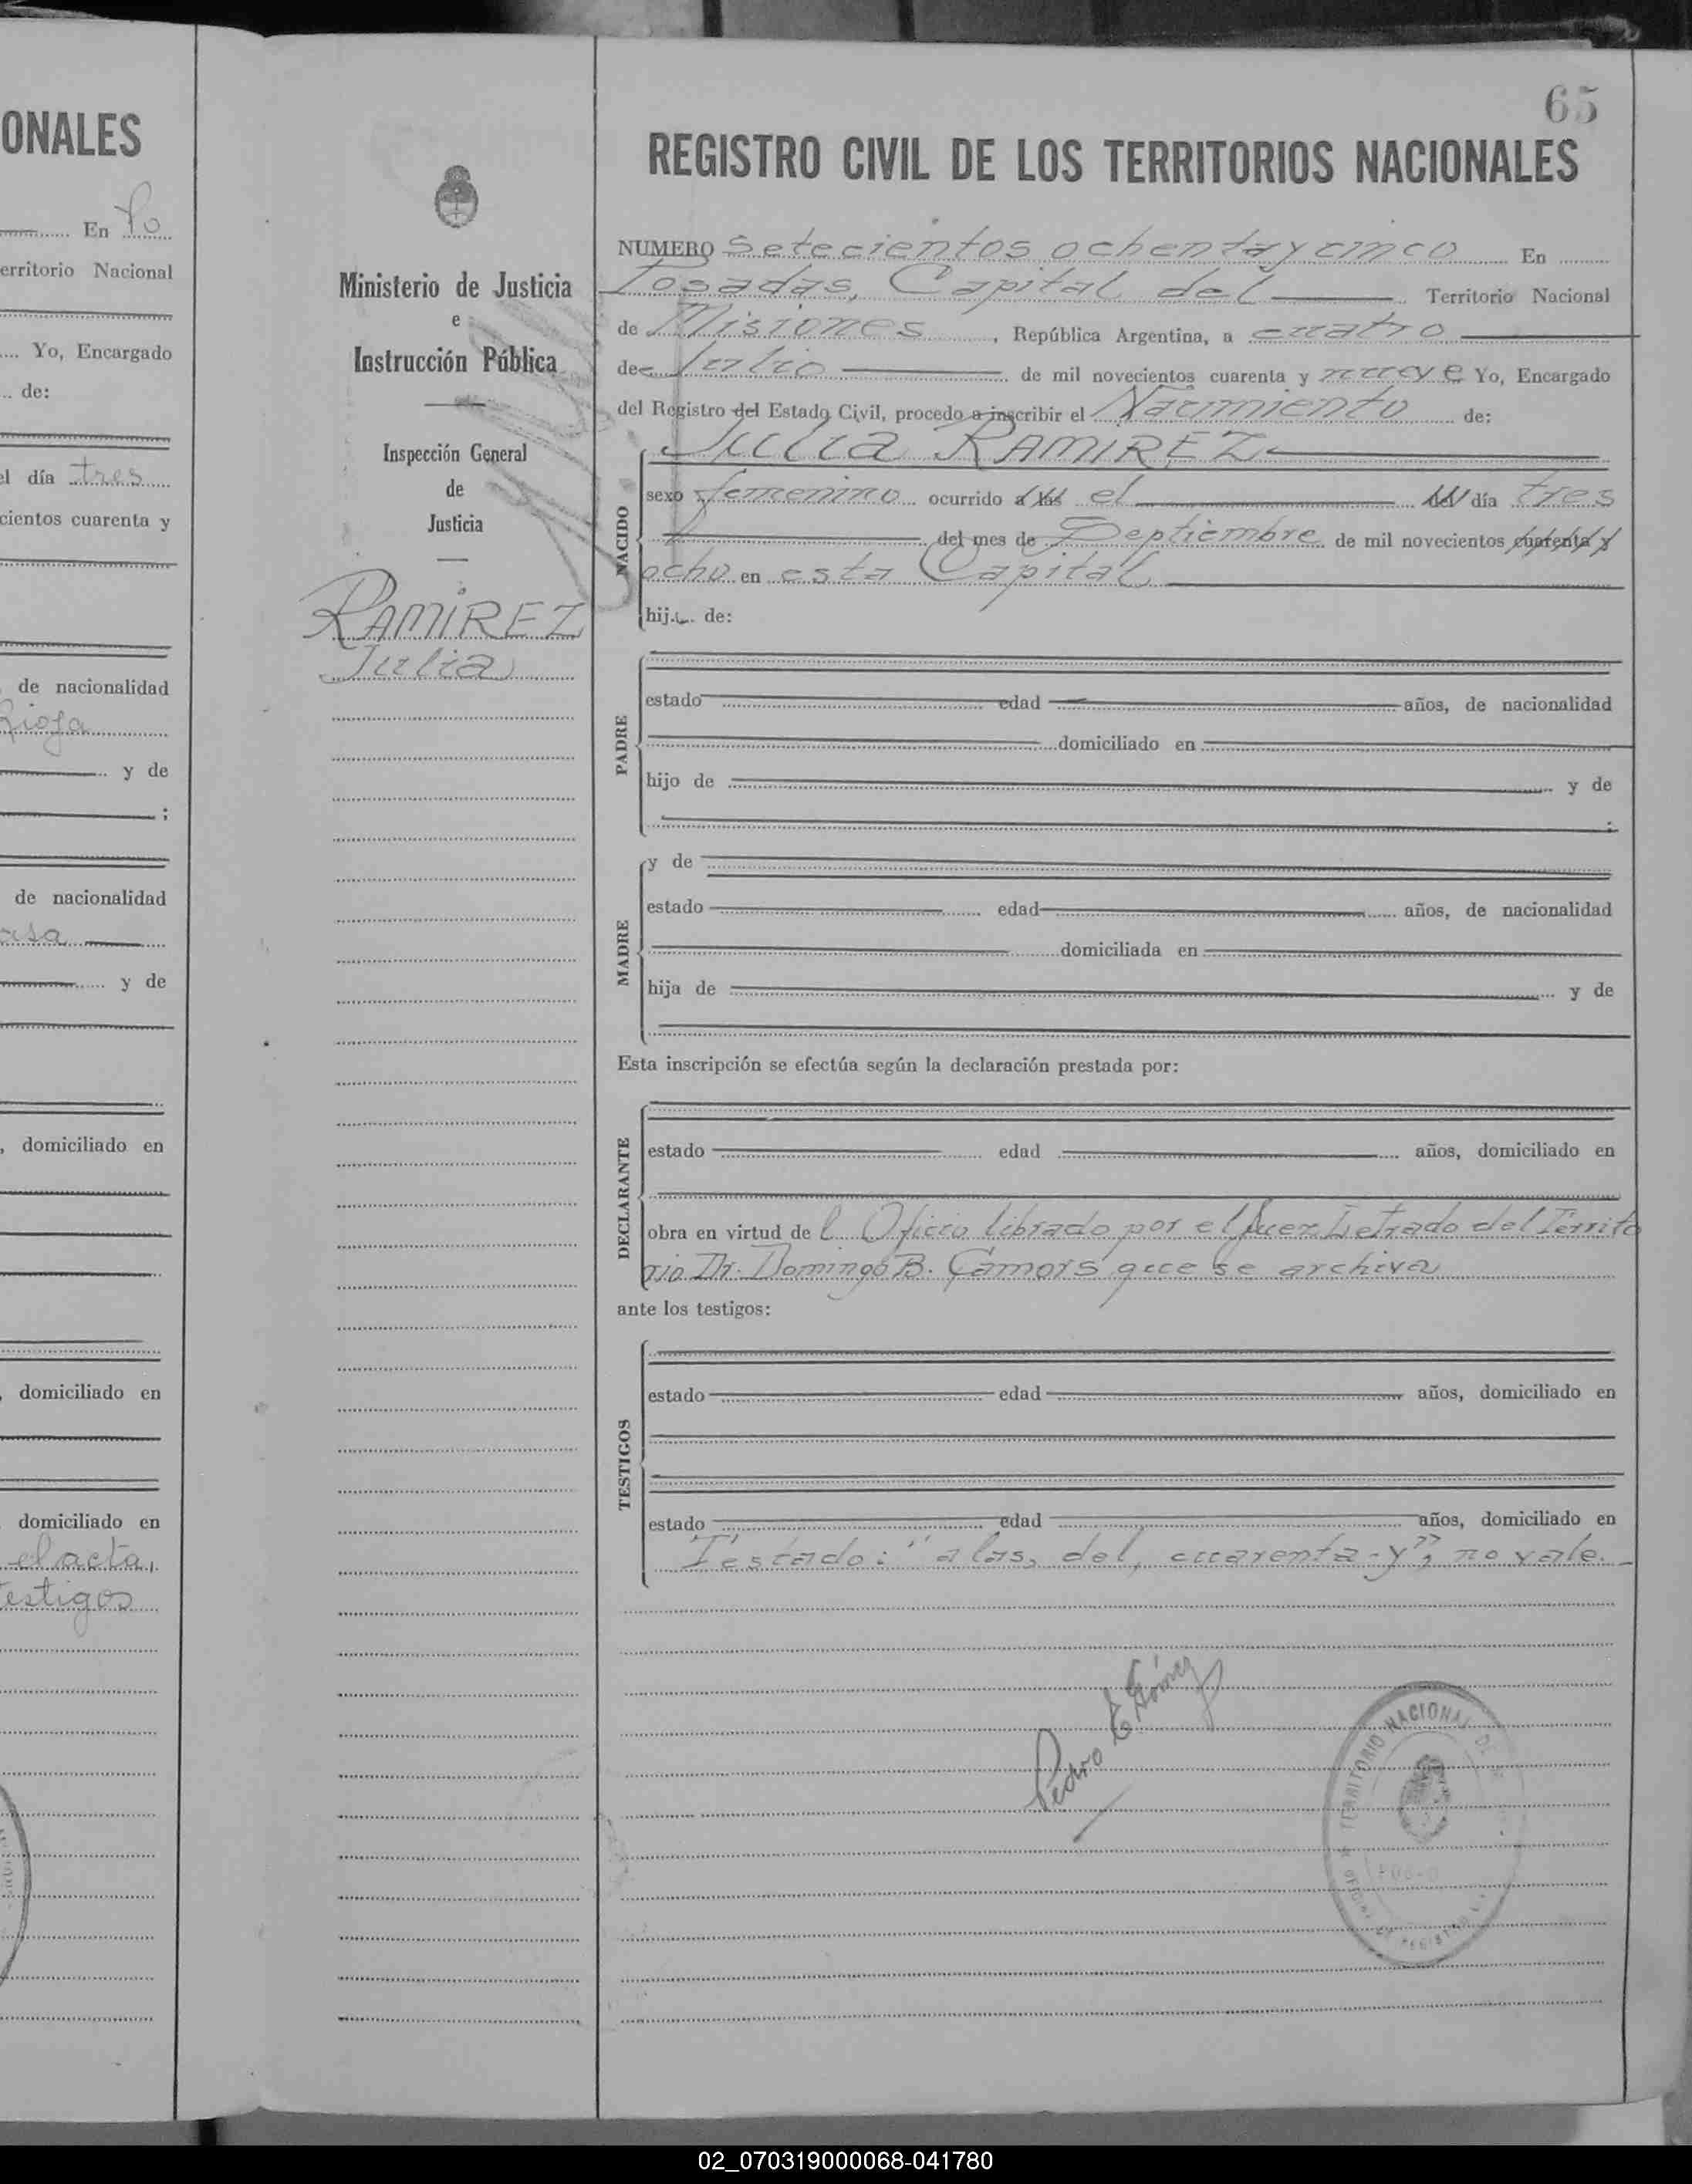 ONALES
En Po
erritorio Nacional
Yo, Encargado
de:
el día tres
cientos cuarenta y
de nacionalidad
Rioja
y de
;
de nacionalidad
asa
y de
, domiciliado en
, domiciliado en
domiciliado en
el acta,
testigos
Ministerio de Justicia
e
Instrucción Pública
Inspección General
de
Justicia
RAMIREZ
Julia
65
REGISTRO CIVIL DE LOS TERRITORIOS NACIONALES
NUMERO Setecientos ochenta y cinco En
Posadas, Capital del Territorio Nacional
de Misiones, República Argentina, a cuatro
de Julio de mil novecientos cuarenta y nueve Yo, Encargado
del Registro del Estado Civil, procedo a inscribir el Nacimiento de:
Julia RAMIREZ
NACIDO
sexo femenino ocurrido a las el del día tres
del mes de Septiembre de mil novecientos cuarenta y
ocho en esta Capital
hija de:
PADRE
estado edad años, de nacionalidad
domiciliado en
hijo de y de
;
MADRE
y de
estado edad años, de nacionalidad
domiciliada en
hija de y de
Esta inscripción se efectúa según la declaración prestada por:
DECLARANTE
estado edad años, domiciliado en
obra en virtud del Oficio librado por el Juez Letrado del Territo
rio Dr. Domingo B. Camors que se archiva
ante los testigos:
TESTIGOS
estado edad años, domiciliado en
estado edad años, domiciliado en
Testado: "a las, del, cuarenta y", no vale.
Pedro E Gómez
TERRITORIO NACIONAL DE
02_070319000068-041780